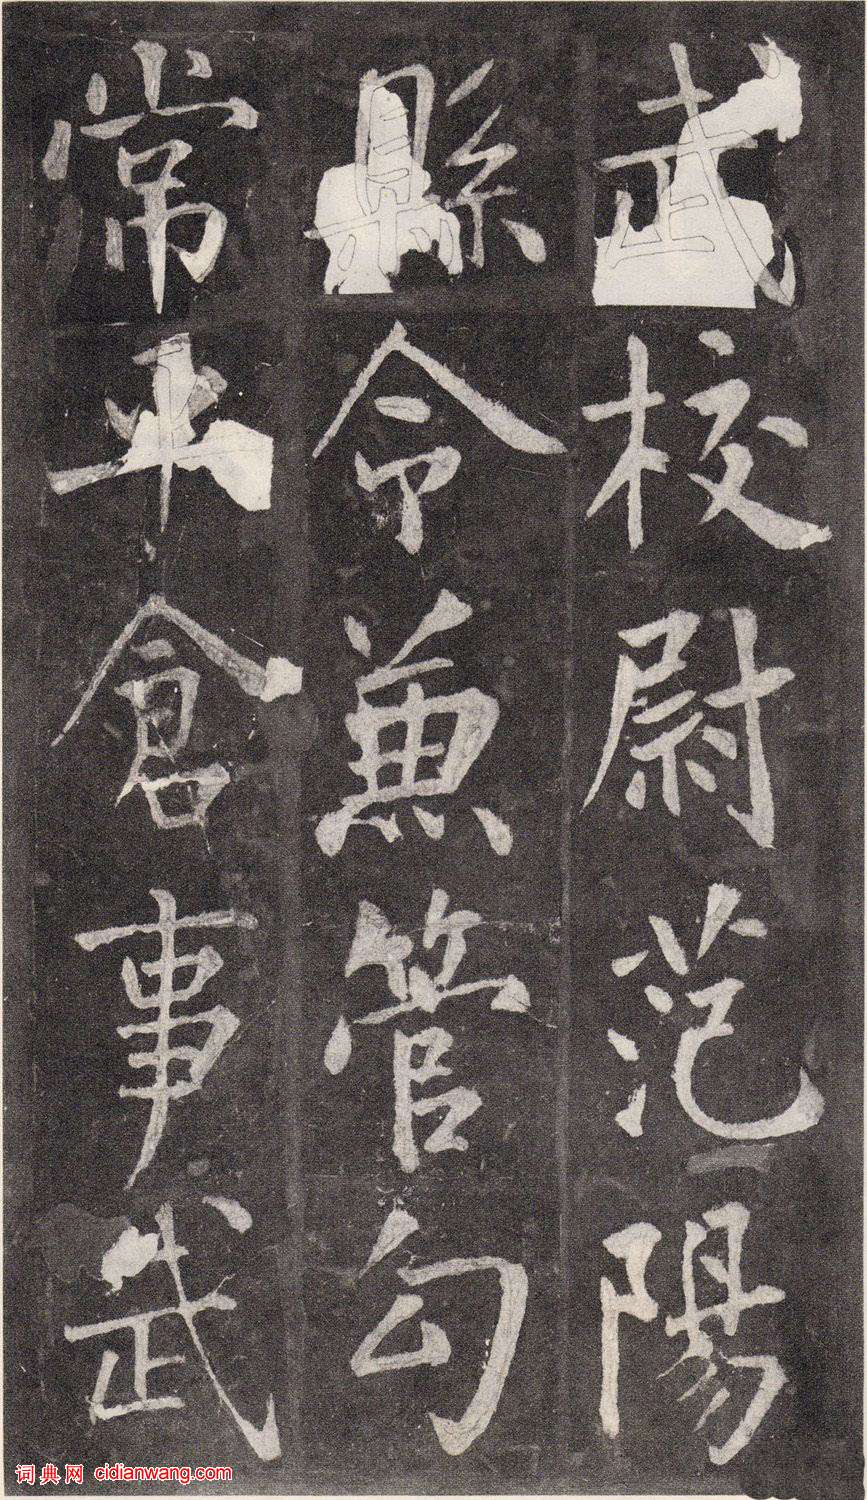 武校尉范陽
縣令兼管勾
常平倉事武
词典网 cidianwang.com